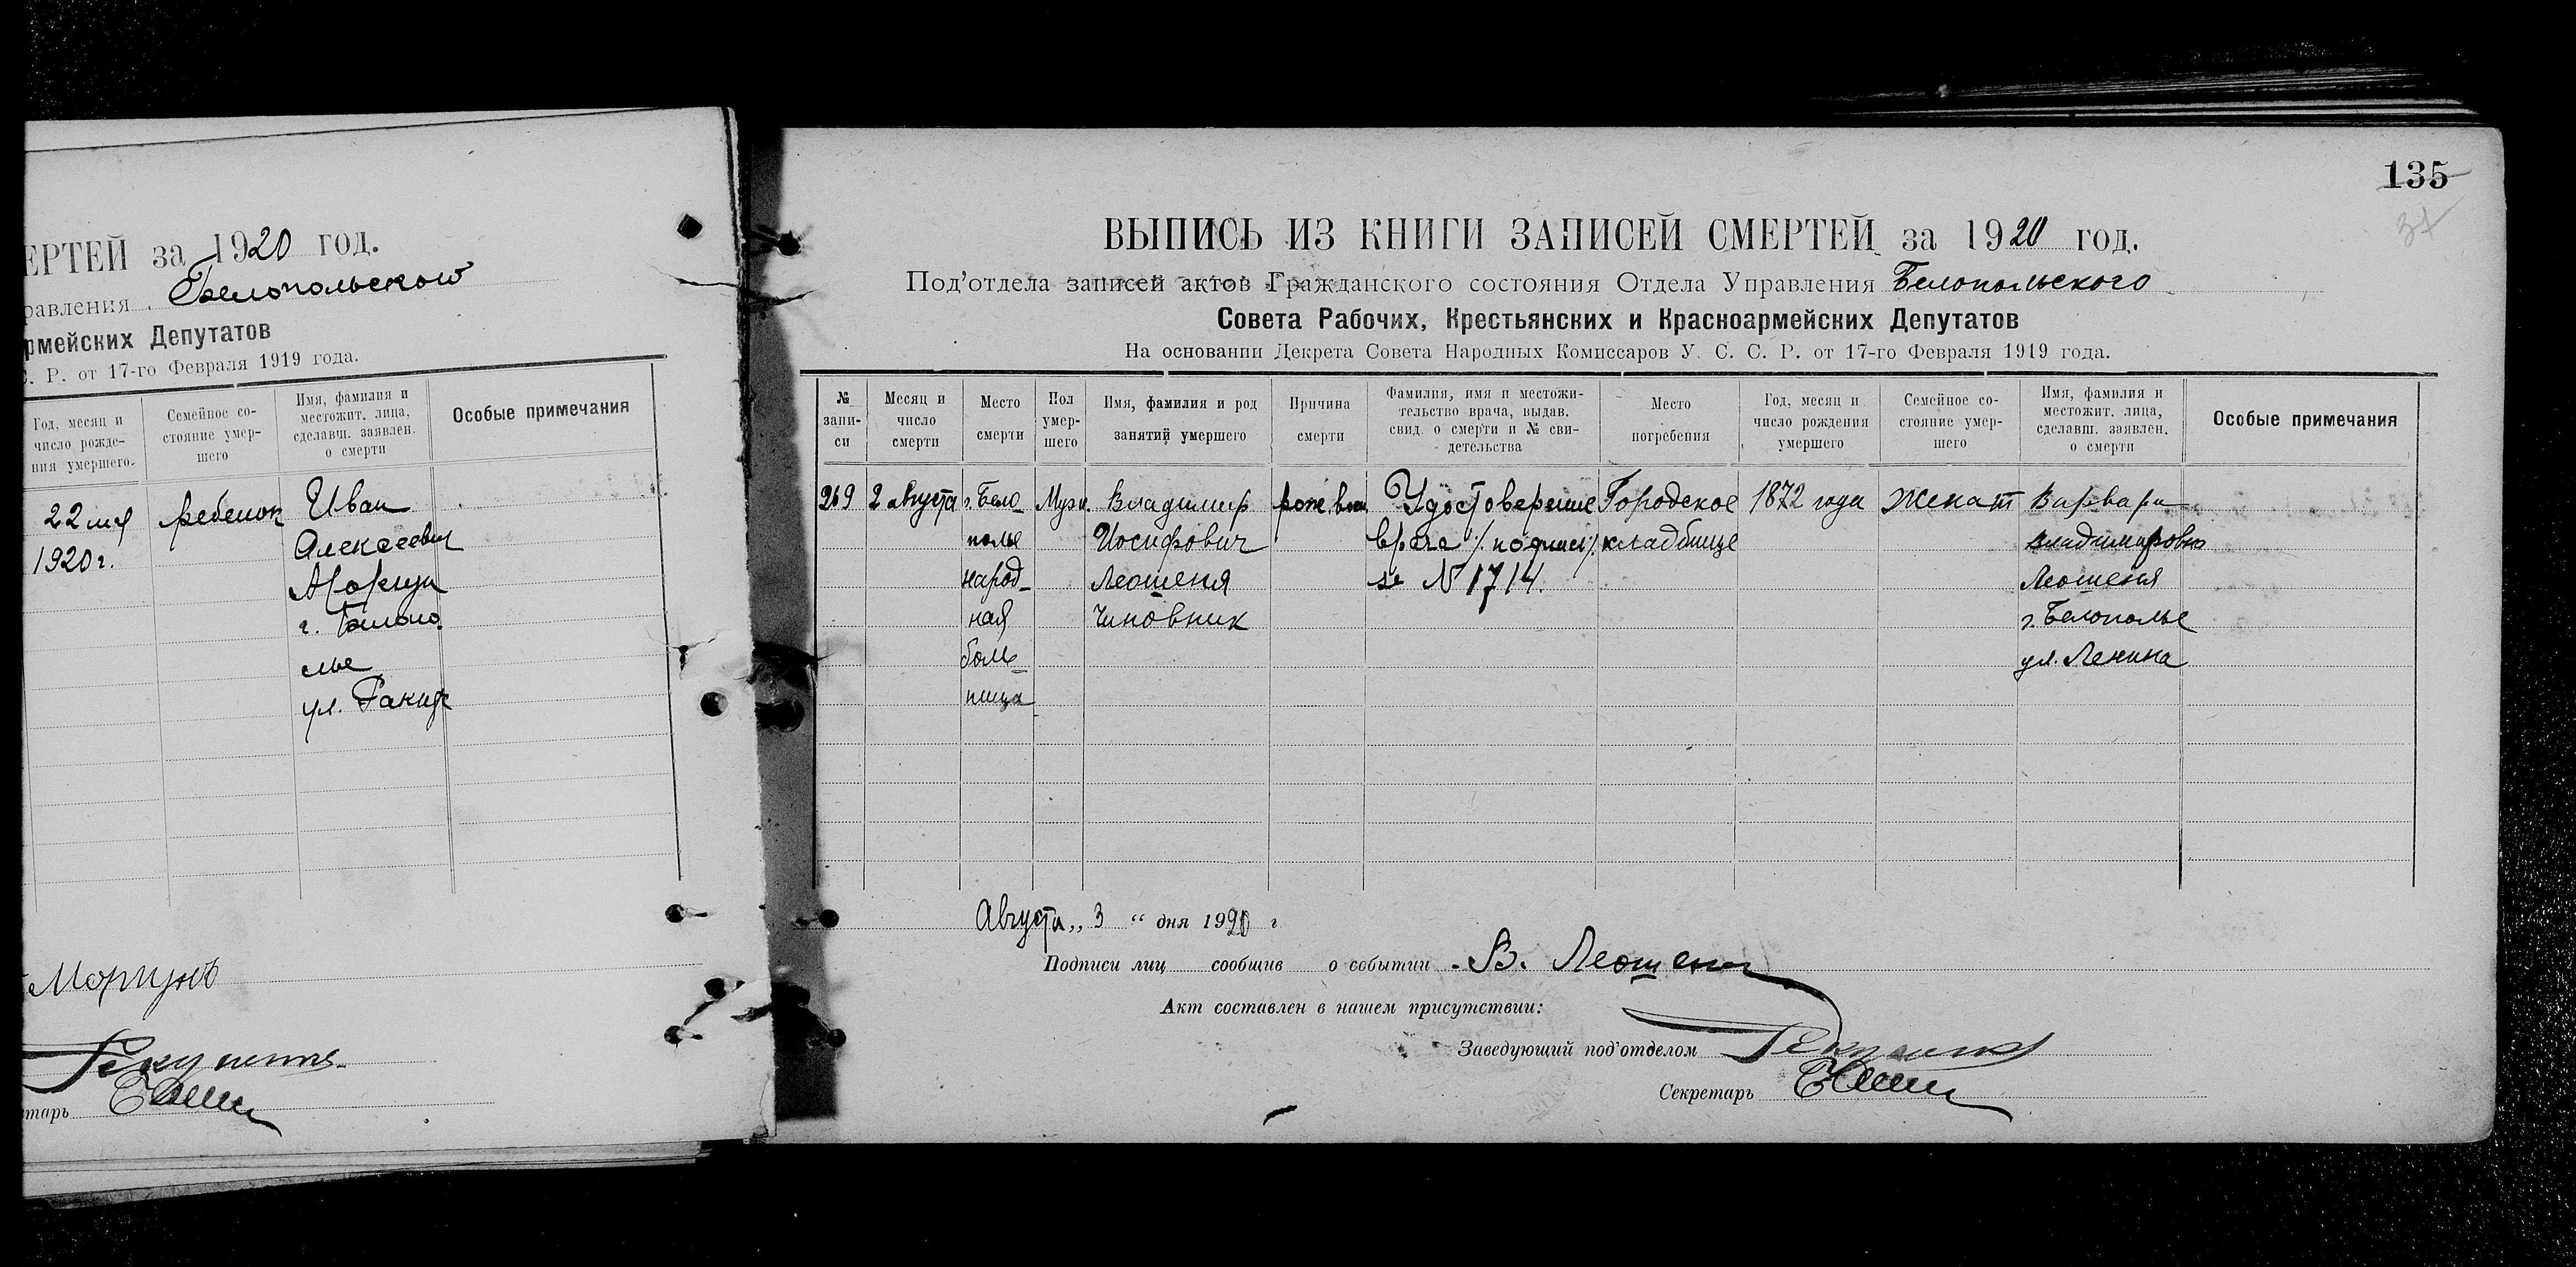 ЕРТЕЙ за 1920 год.
равления Белопольского
рмейских Депутатов
С. Р. от 17-го Февраля 1919 года.
Год, месяц и
число рожде-
ния умершего.
Семейное со-
стояние умер-
шего
Имя, фамилия и
местожит. лица,
сделавш. заявлен.
о смерти
Особые примечания
22 мая
1920 г.
ребенок
Иван
Алексеевич
г. Белопо
лье
ул.
тарь
135
37
ВЫПИСЬ ИЗ КНИГИ ЗАПИСЕЙ СМЕРТЕЙ за 1920 год.
Под'отдела записей актов Гражданского состояния Отдела Управления Белопольского
Совета Рабочих, Крестьянских и Красноармейских Депутатов
На основании Декрета Совета Народных Комиссаров У. С. С. Р. от 17-го Февраля 1919 года.
№
запи-
си
Месяц и
число
смерти
Место
смерти
Пол
умер-
шего
Имя, фамилия и род
занятий умершего
Причина
смерти
Фамилия, имя и местожи-
тельство врача, выдав.
свид. о смерти и № сви-
детельства
Место
погребения
Год, месяц и
число рождения
умершего
Семейное со-
стояние умер-
шего
Имя, фамилия и
местожит. лица,
сделавш. заявлен.
о смерти
Особые примечания
269
2 августа
г. Бело
полье
народ-
ная
боль-
ница
Муж.
Владимир
Иосифович
Леошеня
Чиновник
Удостоверение
врача /. подпись /.
за № 1714.
Городское
кладбище
1872 года
Женат
Варвара
Владимировна
Леошеня
г. Белополье
ул. Ленина
Августа „ 3 “ дня 1920 г
Подписи лиц сообщив о событии В. Леошеня
Акт составлен в нашем присутствии:
Заведующий под'отделом
Секретарь